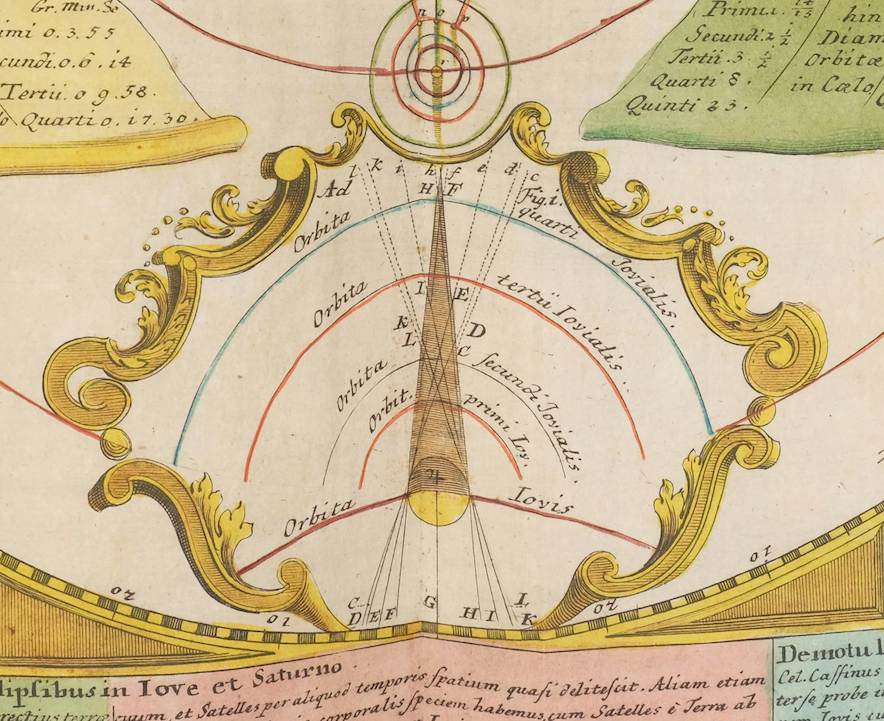 Gr. Min. Se
imi 0. 3. 55
cundi. 0. 6. 14
Tertii. 0 9. 58.
Quarti 0. 17. 30.
Primi. 1. 14/15
Secundi. 2 1/2
Tertii. 3 1/2
Quarti 8.
Quinti 23.
hin
Diam
Orbitæ
in Cœlo
n o p
r
l k i h f e d c
Ad H F Figi.
Orbita quarti Iovialis.
I E
Orbita tertii Iovialis.
k D
L C
Orbita secundi Iovialis.
Orbit. primi Iov.
♃
Orbita Iovis
C L
D E F G H I K
20 10 20 10
lipsibus in Iove et Saturno.
rectius terræ
, et Satelles per aliquod temporis spatium quasi delitescit. Aliam etiam
corporalis speciem habemus, cum Satelles è Terra ab
De motu
Cel. Cassinus
terse probe